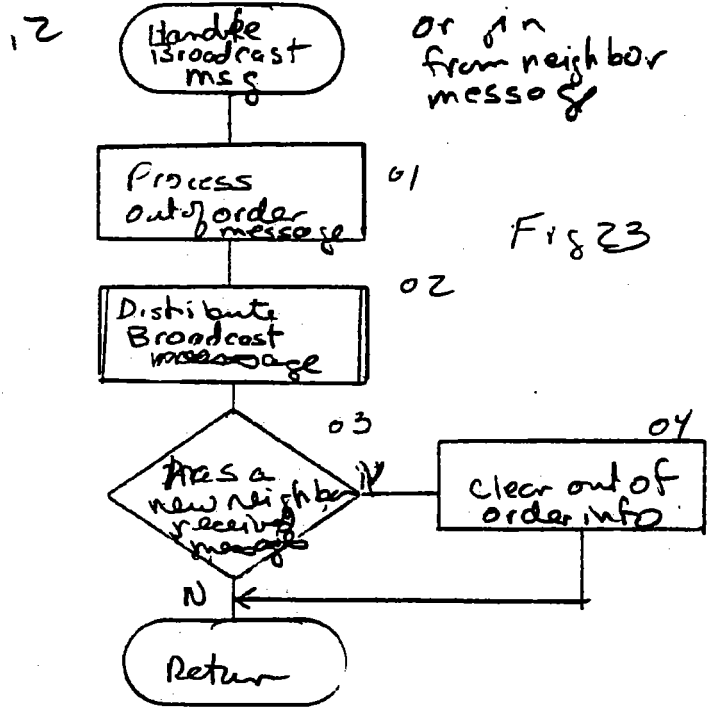 ,2
Handle
Broadcast
msg
or
from neighbor
message
Process
out of order
message
01
Fig 23
Distribute
Broadcast
message
02
03
Has a
new neighbor
received
message
Y
04
Clear out of
order info
N
Return